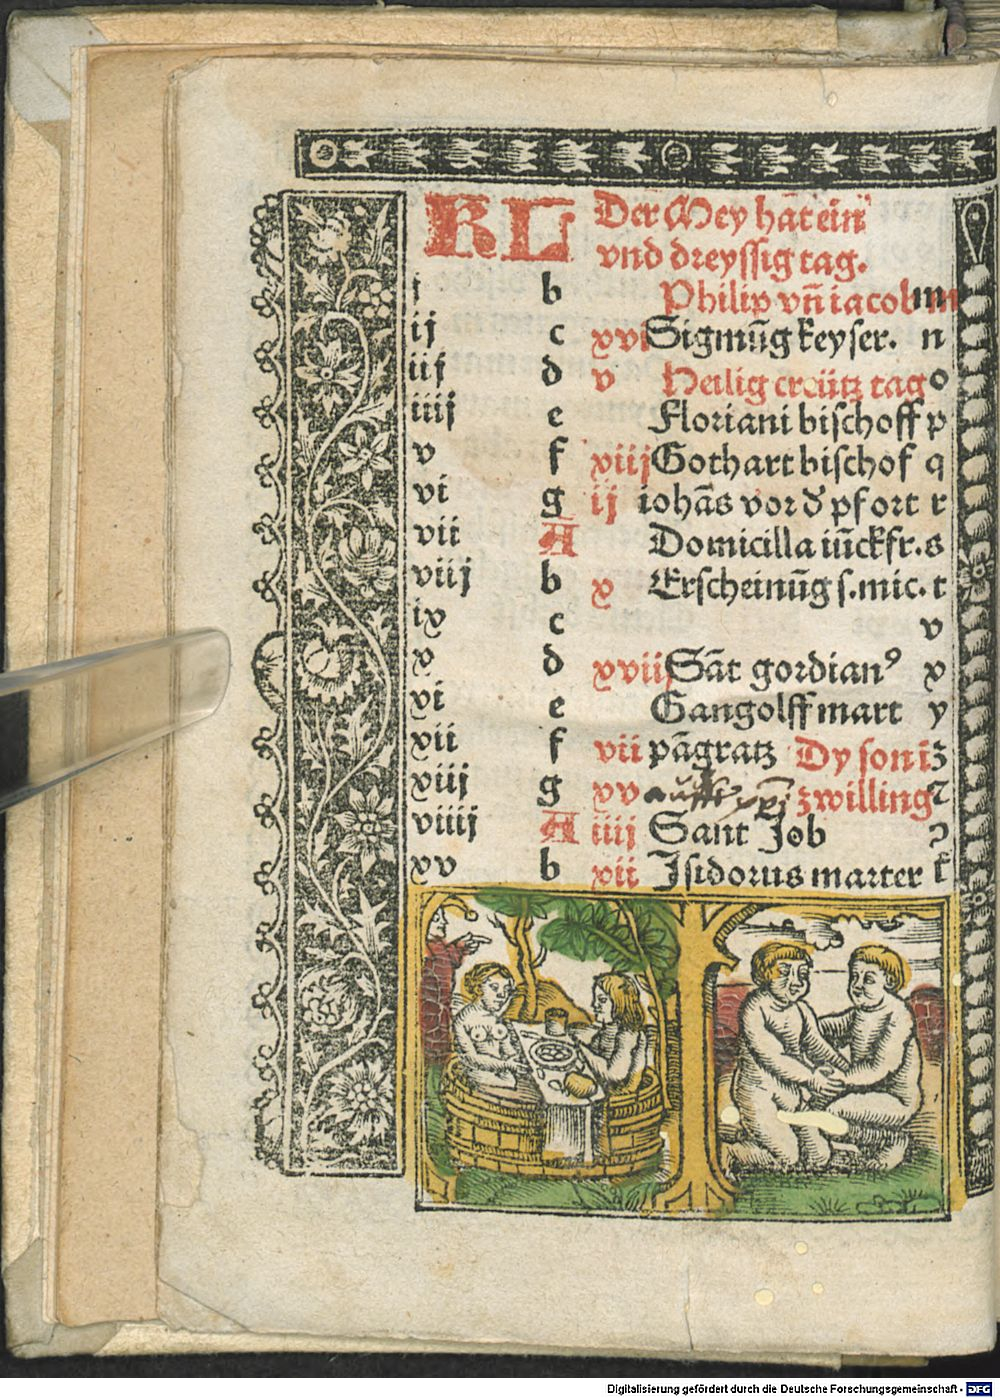 KL Der Mey hat ein
vnd dreyssig tag.
j b Philip vñ iacob m
ij c xvi Sigmũg keyser. n
iij d v Heilig creütz tag o
iiij e Floriani bischoff p
v f xiij Gothart bischof q
vi g ij iohãs vor d̕ pfort r
vii A Domicilla iũckfr. s
viij b x Erscheinũg s. mic. t
ix c v
x d xviij Sãt gordianꝰ x
xi e Gangolff mart y
xii f vii pãgratz Dy son ĩ z
xiij g xv zwilling ꝛ
xiiij A iiij Sant Job ɔ
xv b xii Jsidorus marter k
Digitalisierung gefördert durch die Deutsche Forschungsgemeinschaft - DFG